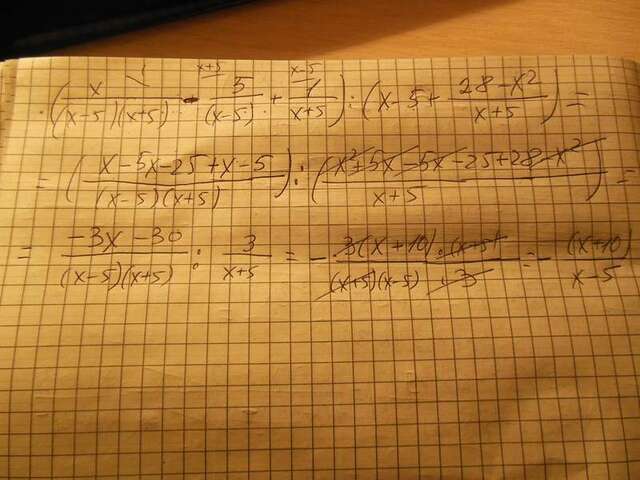 x+5 x-5
(x/((x-5)(x+5)) - 5/(x-5) + 1/(x+5)) : (x-5+ (28-x²)/(x+5)) =
= ((x-5x-25+x-5)/((x-5)(x+5))) : ((x²+5x-5x-25+28-x²)/(x+5)) =
= (-3x-30)/((x-5)(x+5)) : 3/(x+5) = - (3(x+10)·(x+5))/((x+5)(x-5)·3) = - (x+10)/(x-5)